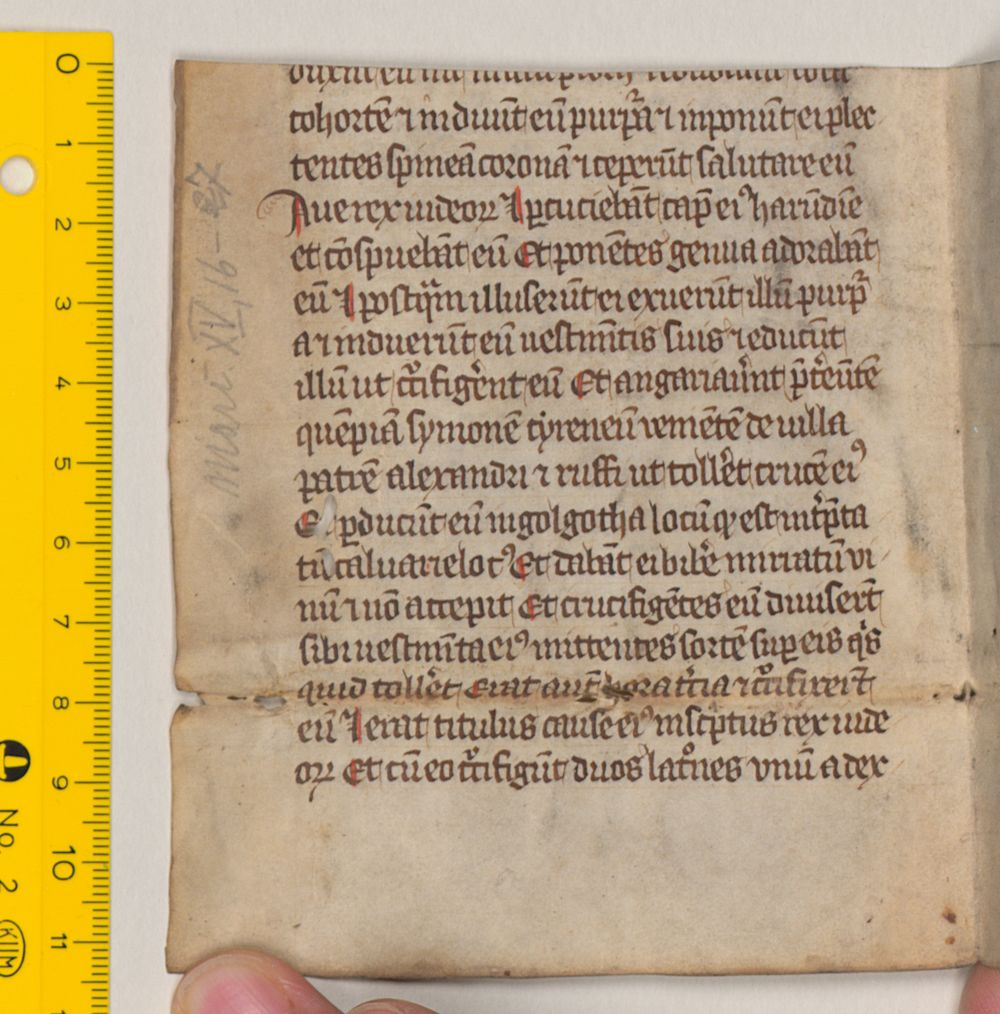 cohortē ⁊ induūt eū purpᵃ̄ ⁊ inponūt ei plec
tentes spineā coronā ⁊ ceperūt salutare eū
Aue rex iudeoꝝ ⁊ ꝑcuciebāt cap̄ eiꝰ harūdīe
et cōspuebāt eū Et ponētes genua adorabāt
eū ⁊ postqᵃ̄m illuserūt ei exuerūt illū purp̄
a ⁊ induerūt eū uestimn̄tis suis ⁊ educūt
illū ut cͣifigᵉ̄nt eū Et angariauᵉ̄nt p̄tᵉeūtē
quēpiā symonē cyreneū veniētē de uilla
patrē alexandri ⁊ ruffi ut tollᵉ̄t crucē eiꝰ
Et ꝑducūt eū in golgotha locū qͩ est int̄p̄ta
tū caluarie locꝰ Et dabāt ei bibᵉ̄ mirratū vi
nū ⁊ nō accepit Et crucifigētes eū diuisert̄
sibi uestimn̄ta eiꝰ mittentes sortē suꝑ eis qͥs
quid tollᵉ̄t Erat aut̄ hora tͨcia ⁊ cͣifixert̄
eū ⁊ erat titulus cause eiꝰ inscͥptus rex iude
oꝝ Et cū eo cͣifigūt duos latͦnes vnū a dex
Marc. XV, 16-27
0
1
2
3
4
5
6
7
8
9
10
11
No. 2
KIIM